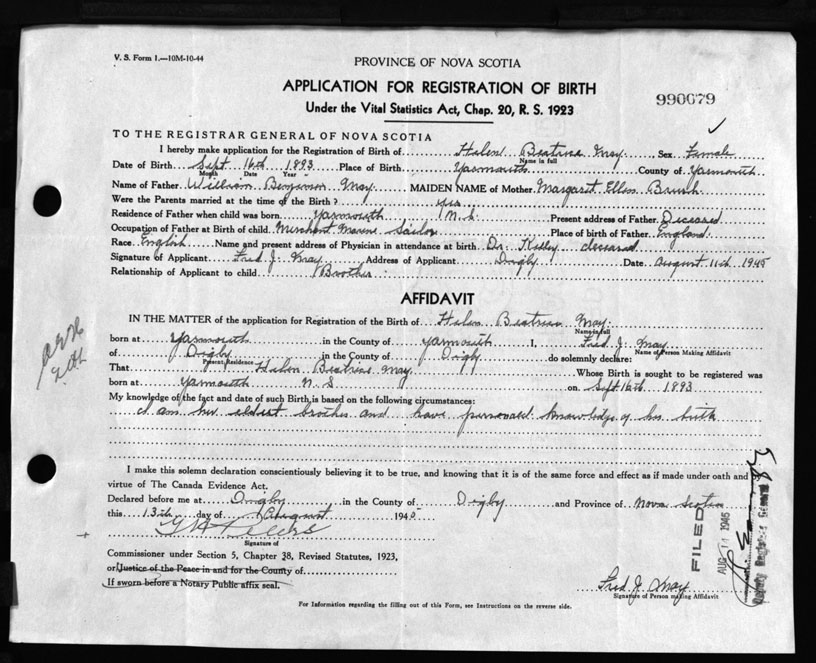 V. S. Form 1.—10M-10-44
PROVINCE OF NOVA SCOTIA
APPLICATION FOR REGISTRATION OF BIRTH
990679
Under the Vital Statistics Act, Chap. 20, R. S. 1923
TO THE REGISTRAR GENERAL OF NOVA SCOTIA
I hereby make application for the Registration of Birth of Helen Beatrice May, Sex Female
Name in full
Date of Birth Sept 16th 1893 Place of Birth Yarmouth County of Yarmouth
Month Date Year
Name of Father William Benjamin May MAIDEN NAME of Mother Margaret Ellen Brush
Were the Parents married at the time of the Birth? yes
Residence of Father when child was born Yarmouth N.S. Present address of Father Deceased
Occupation of Father at Birth of child Merchant Marine Sailor Place of birth of Father England
Race English Name and present address of Physician in attendance at birth Dr. Kelley deceased
Signature of Applicant Fred J. May Address of Applicant Digby Date August 11th 1945
Relationship of Applicant to child Brother
AFFIDAVIT
IN THE MATTER of the application for Registration of the Birth of Helen Beatrice May
Name in full
born at Yarmouth in the County of Yarmouth I, Fred J. May
Name of Person Making Affidavit
of Digby in the County of Digby do solemnly declare:
Present Residence
That Helen Beatrice May Whose Birth is sought to be registered was
born at Yarmouth N.S on Sept 16th 1893
My knowledge of the fact and date of such Birth is based on the following circumstances:
I am her eldest brother and have personal knowledge of her birth
I make this solemn declaration conscientiously believing it to be true, and knowing that it is of the same force and effect as if made under oath and by
virtue of The Canada Evidence Act.
Declared before me at Digby in the County of Digby and Province of Nova Scotia
this 13th day of August 1945
Signature of
Commissioner under Section 5, Chapter 38, Revised Statutes, 1923,
or Justice of the Peace in and for the County of
If sworn before a Notary Public affix seal.
Fred J. May
Signature of Person making Affidavit
For Information regarding the filling out of this Form, see Instructions on the reverse side.
FILED
AUG 14 1945
Deputy Registrar General